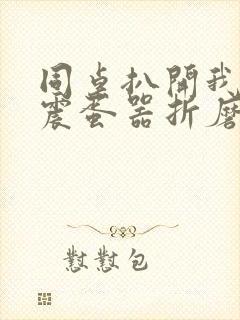 同桌扒開我
震蛋器折磨
懟懟包